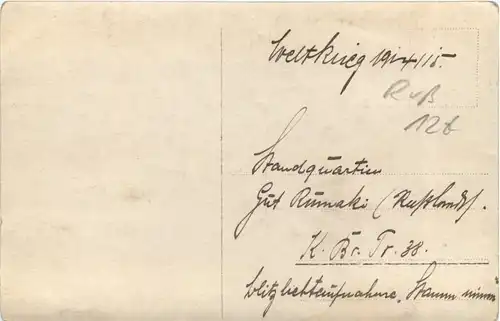 Weltkrieg 1914/15.
Ruß
12t
Standquartier
Gut Rumaki (Russland).
K. Br. Tr. 38.
Blitzlichtaufnahme, "Stamm